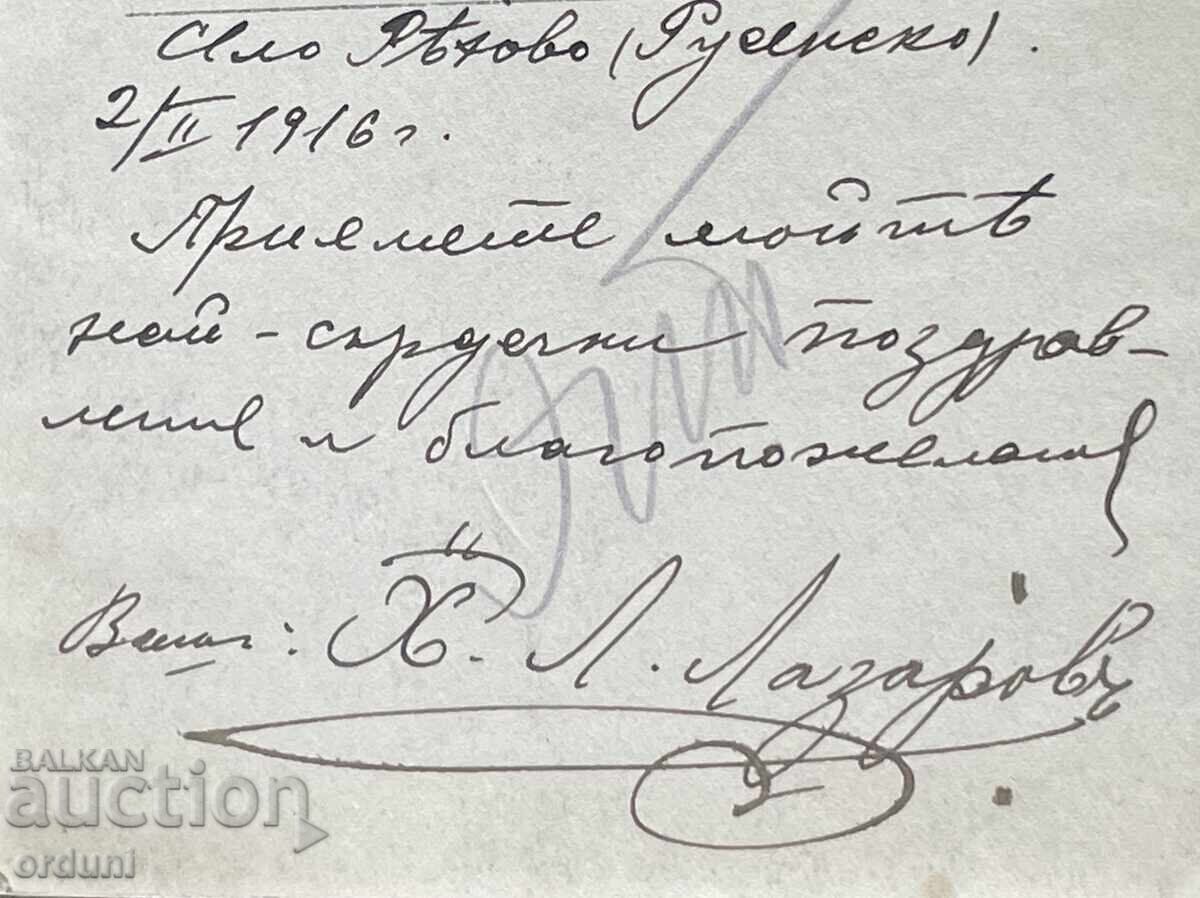 Село Рѣхово (Русенско).
2/II 1916 г.
Приемете моитѣ
най-сърдечни поздрав-
ления и благопожелания
Вашъ: Х. Л. Лазаровъ
BALKAN
auction
orduni